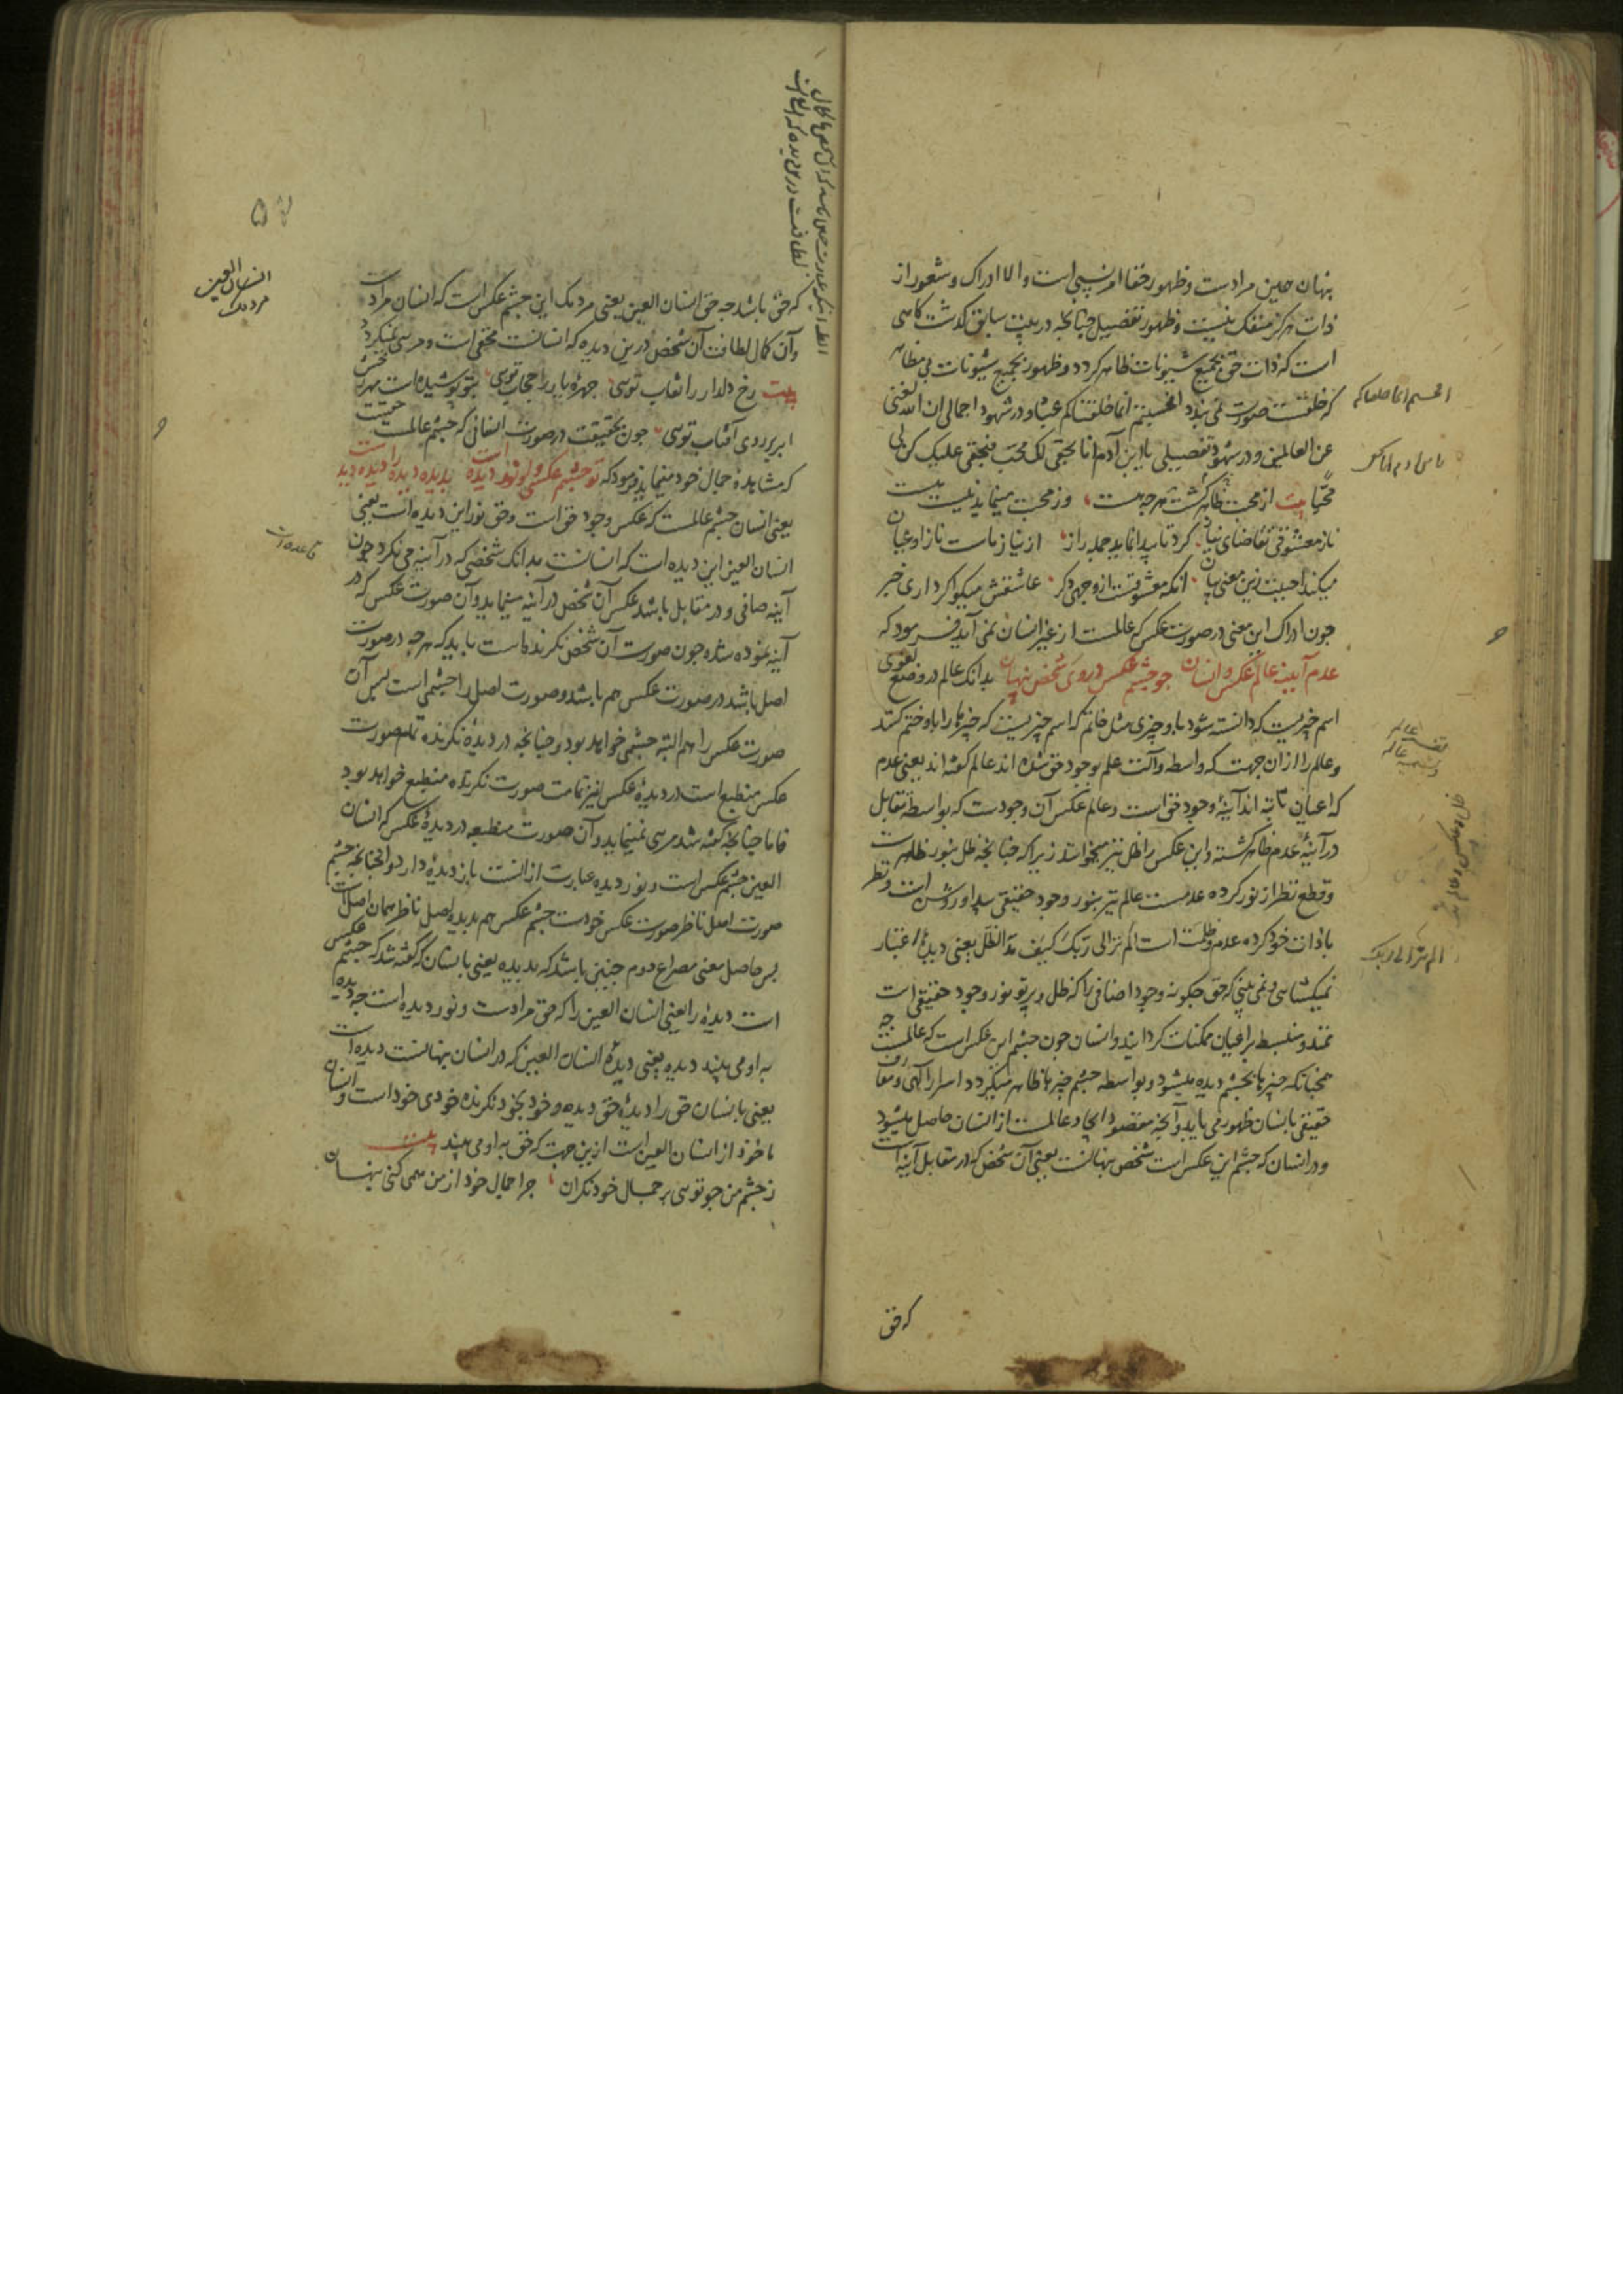 پنهان همین مرادست و ظهور و خفا امر نسبی است والا ادراک و شعور از
ذات هرگز منفک نیست و ظهور تفصیلی چنانچه در بیت سابق گذشت کاهی
است که ذات حق بجمیع شیونات ظاهر گردد و ظهور بجمیع شیونات بی مظاهر
که خلقست صورت نمی بندد افحسبتم انما خلقناکم عبثا و در شهود اجمالی ان الله لغنی
عن العالمین و در شهود تفصیلی یا ابن آدم انا بحقی لک محب فبحقی علیک کن لی
محبا بیت از محبت ظاهر گشت هرچه هست وز محبت مینماید نیست هست
ناز معشوقی تقاضای نیاز کرد تا پیدا نماید جمله راز از نیاز ماست ناز او عیان
میکند احببت زین معنی بیان آنکه معشوقست از وجهی دگر عاشقش میگو اگر داری خبر
چون ادراک این معنی در صورت عکس که عالمست از غیر انسان نمی آید فرمود که
عدم آیینه عالم عکس و انسان چو چشم عکس در وی شخص پنهان بدانک عالم در وضع لغوی
اسم چیزیست که دانسته شود باو چیزی مثل خاتم که اسم چیزیست که چیزها را باو ختم کنند
و عالم را از آن جهت که واسطه و آلت علم بوجود حق شده اند عالم گفته اند یعنی عدم
که اعیان ثابته اند آیینهٔ وجود حق است و عالم عکس آن وجودست که بواسطهٔ تقابل
در آینهٔ عدم ظاهر گشته و این عکس را ظل نیز میخوانند زیرا که چنانچه ظل بنور ظاهرست
و قطع نظر از نور کرده عدمست عالم نیز بنور وجود حقیقی پیدا و روشن است و نظر
با ذات خود کرده عدم و ظلمت است الم تر الی ربک کیف مد الظل یعنی دیدهٔ اعتبار
نمیگشایی و نمی بینی که حق چگونه وجود اضافی را که ظل و پرتو نور وجود حقیقی است
ممتد و منبسط بر اعیان ممکنات گردانید و انسان چون چشم این عکس است که عالمست چه
همچنانکه چیزها بچشم دیده میشود و بواسطه چشم چیزها ظاهر میگردد اسرار الهی و معارف
حقیقی بانسان ظهور می یابد و آنچه مقصود ایجاد عالمست از انسان حاصل میشود
و در انسان که چشم این عکس است شخص پنهانست یعنی آن شخص که در مقابل آینه است
که حق
الم تر الی ربک
که حق باشد چه حق انسان العین یعنی مردمک این چشم عکس است که انسان مرادست
و آن کمال لطافت آن شخص درین دیده که انسانست مختفی است و مرئی نمیگردد
بیت رخ دلدار را نقاب تویی چهرهٔ یار را حجاب تویی بتو پوشیده است مهر رخش
ابر بر روی آفتاب تویی چون بحقیقت در صورت انسانی که چشم عالمست حقست
که مشاهدهٔ جمال خود مینماید فرمود که تو چشم عکسی و او نور دیده است بدیده دیده را دیده دیدست
یعنی انسان چشم عالمست که عکس وجود حق است و حق نور این دیده است یعنی
انسان العین این دیده است که انسانست بدانک شخصی که در آینه می نگرد چون
آینه صافی و در مقابل باشد عکس آن شخص در آینه مینماید و آن صورت عکس که در
آینه نموده شده چون صورت آن شخص نگرنده است باید که هرچه در صورت
اصل باشد در صورت عکس هم باشد و صورت اصل را چشمی است پس آن
صورت عکس را هم البته چشمی خواهد بود و چنانچه در دیدهٔ نگرنده تمام صورت
عکس منطبع است در دیدهٔ عکس نیز تمامت صورت نگرنده منطبع خواهد بود
فاما چنانچه گفته شد مرئی نمینماید و آن صورت منطبعه در دیدهٔ عکس که انسان
العین چشم عکس است و نور دیده عبارت از آنست باز دیدهٔ دارد و آنچنانچه چشم
صورت اصل ناظر صورت عکس خودست چشم عکس هم بدیدهٔ اصل ناظر همان اصل است
پس حاصل معنی مصراع دوم چنین باشد که بدیده یعنی بانسان که گفته شد که چشم عکس
است دیده را یعنی انسان العین را که حق مرادست و نور دیده است چه دیده
به او می بیند دیده یعنی دیدهٔ انسان العین که در انسان پنهانست دیده است
یعنی بانسان حق را دیدهٔ حق دیده و خود بخود نگرنده خودی خود است و انسان
ماخوذ از انسان العین است ازین جهت که حق به او می بیند بیت
ز چشم من چو تویی بر جمال خود نگران چرا جمال خود از من همی کنی پنهان
انسان العین
مردمک
قاعده است